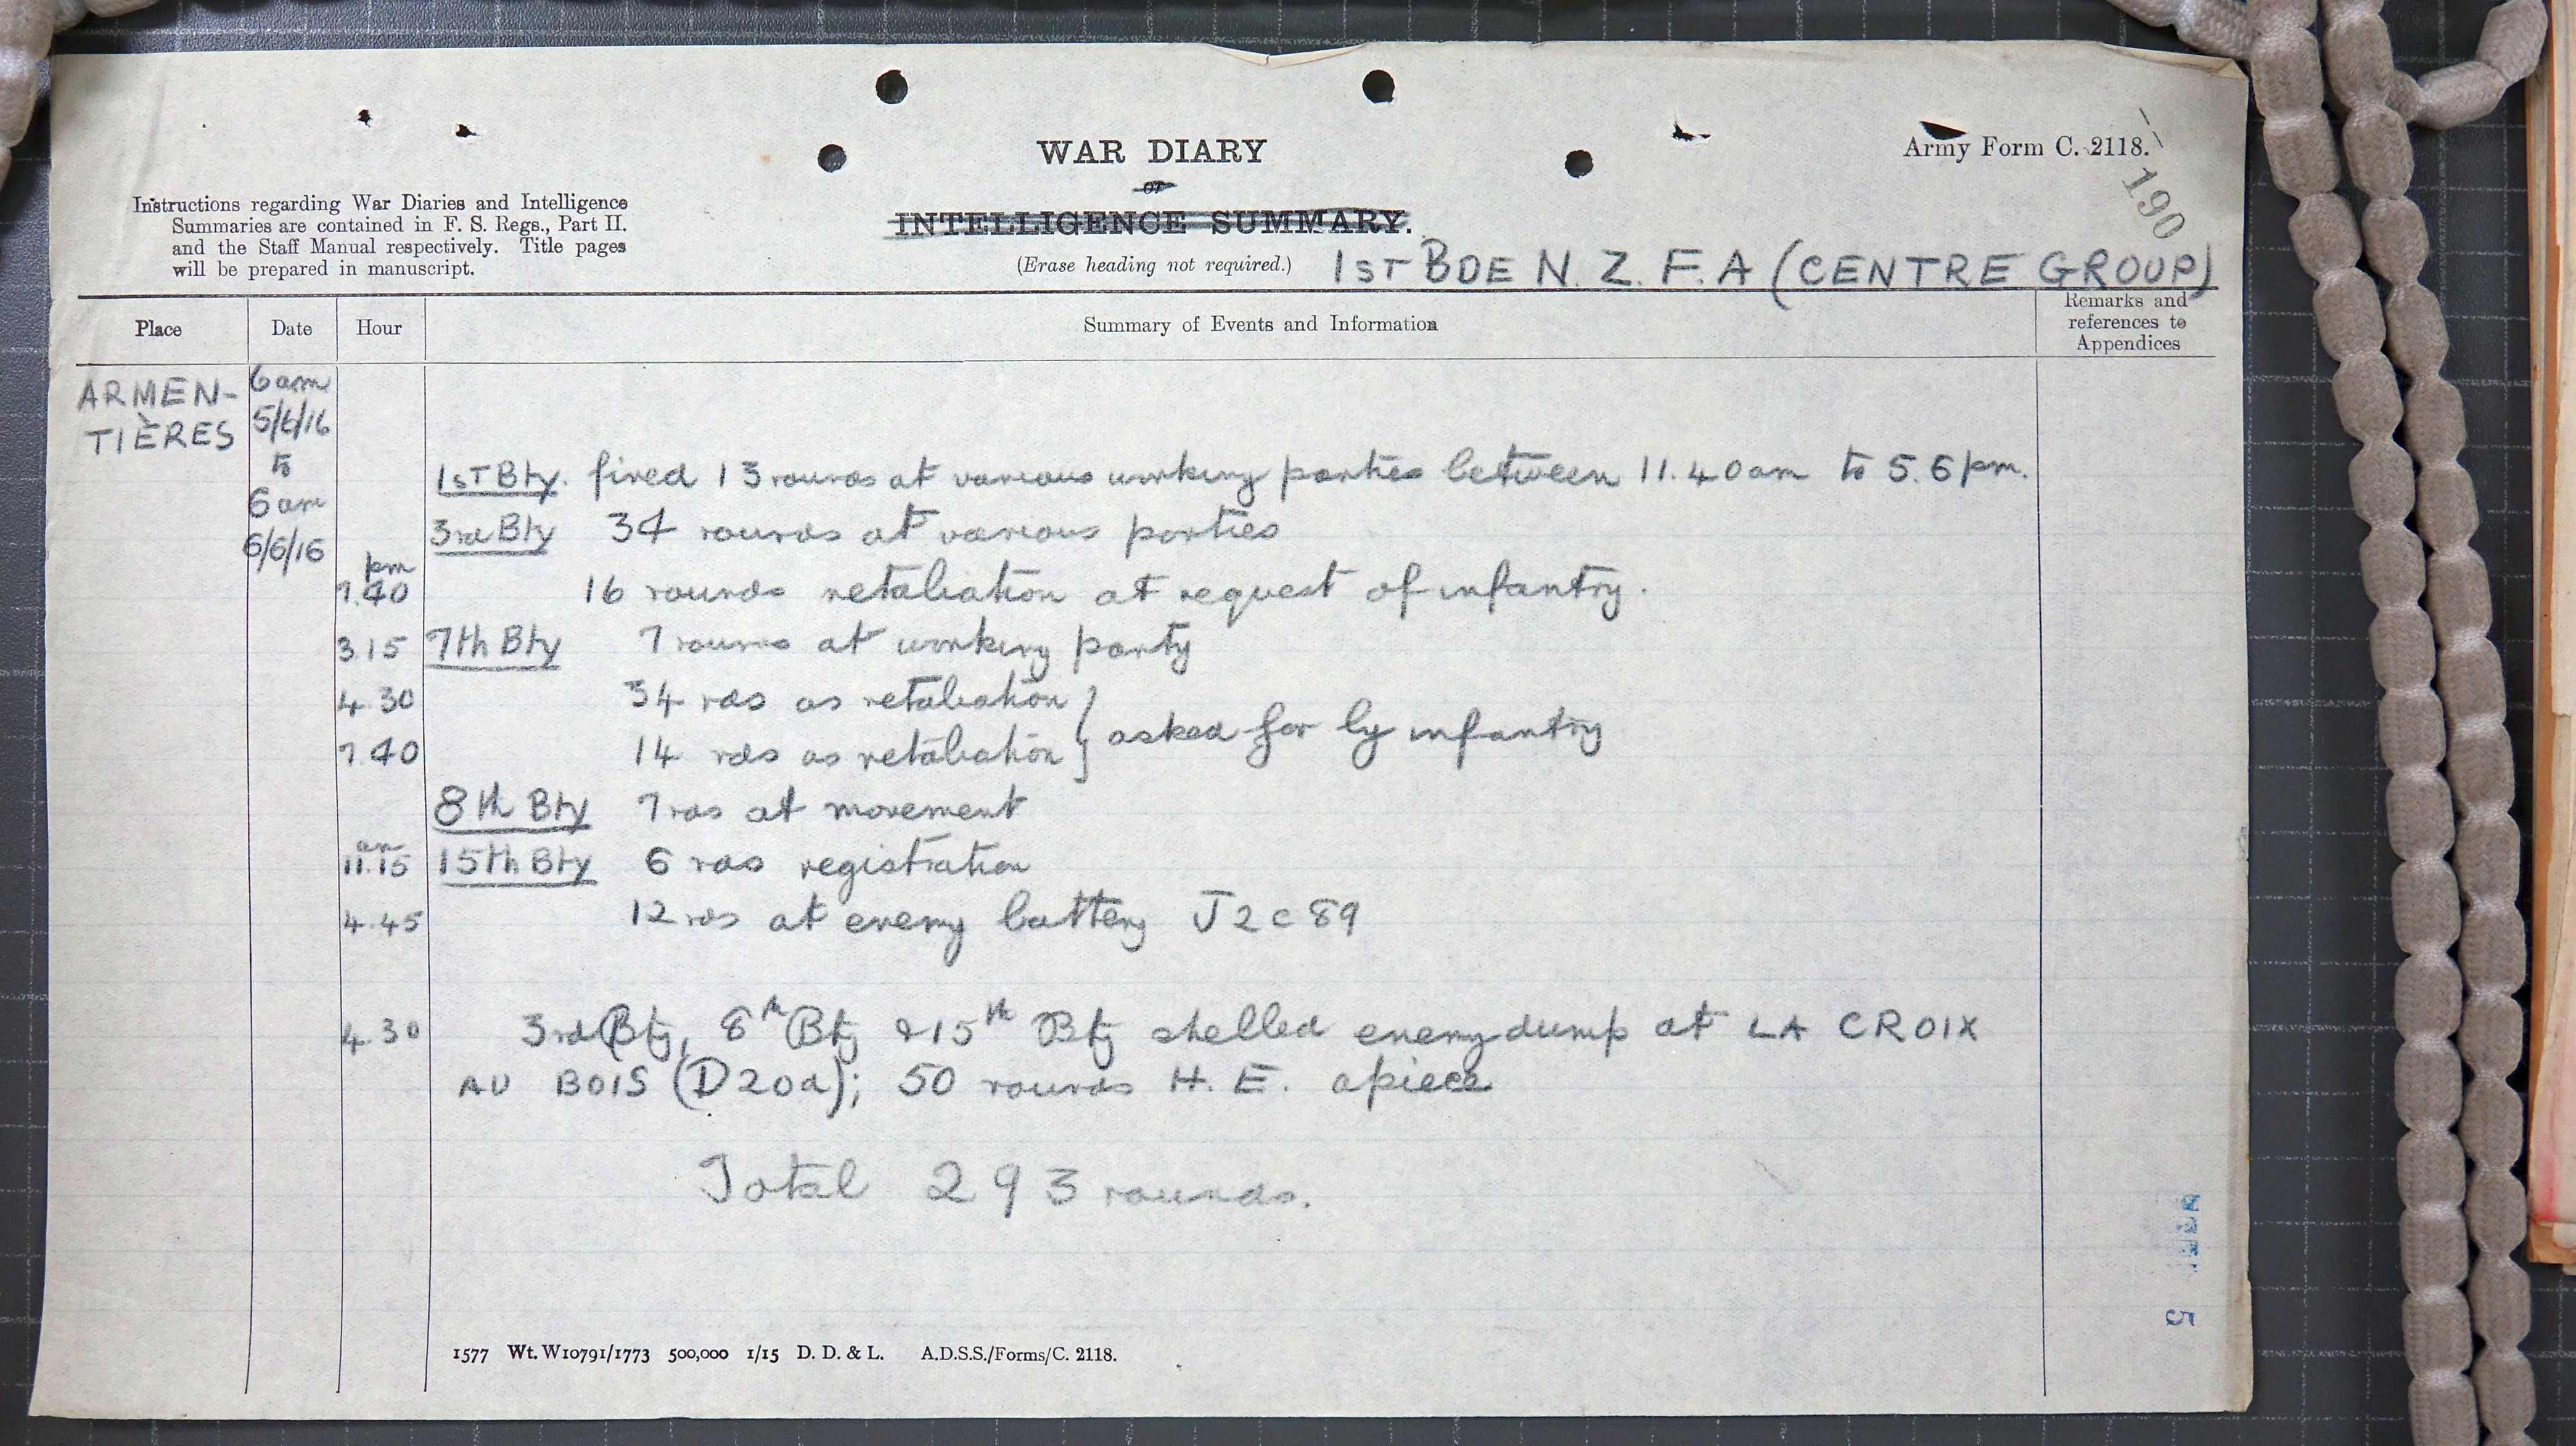 WAR DIARY
or
INTELLIGENCE SUMMARY.
(Erase heading not required.)
Army Form C. 2118.
190
Instructions regarding War Diaries and Intelligence
Summaries are contained in F. S. Regs., Part II.
and the Staff Manual respectively. Title pages
will be prepared in manuscript.
1ST BDE N. Z. F. A (CENTRE GROUP)
Place Date Hour Summary of Events and Information Remarks and references to Appendices
ARMEN-
TIÈRES
6 am
5/6/16
to
6 am
6/6/16
1ST Bty. fired 13 rounds at various working parties between 11.40 am to 5.6 pm.
3rd Bty 34 rounds at various parties
pm
7.40 16 rounds retaliation at request of infantry.
3.15 7th Bty 7 rounds at working party
4.30 34 rds as retaliation } asked for by infantry
7.40 14 rds as retaliation
8th Bty 7 rds at movement
am
11.15 15th Bty 6 rds registration
4.45 12 rds at enemy battery J 2 c 89
4.30 3rd Bty, 8th Bty & 15th Bty shelled enemy dump at LA CROIX
AU BOIS (D20d); 50 rounds H. E. apiece
Total 293 rounds.
1577 Wt. W10791/1773 500,000 1/15 D. D. & L. A.D.S.S./Forms/C. 2118.
5